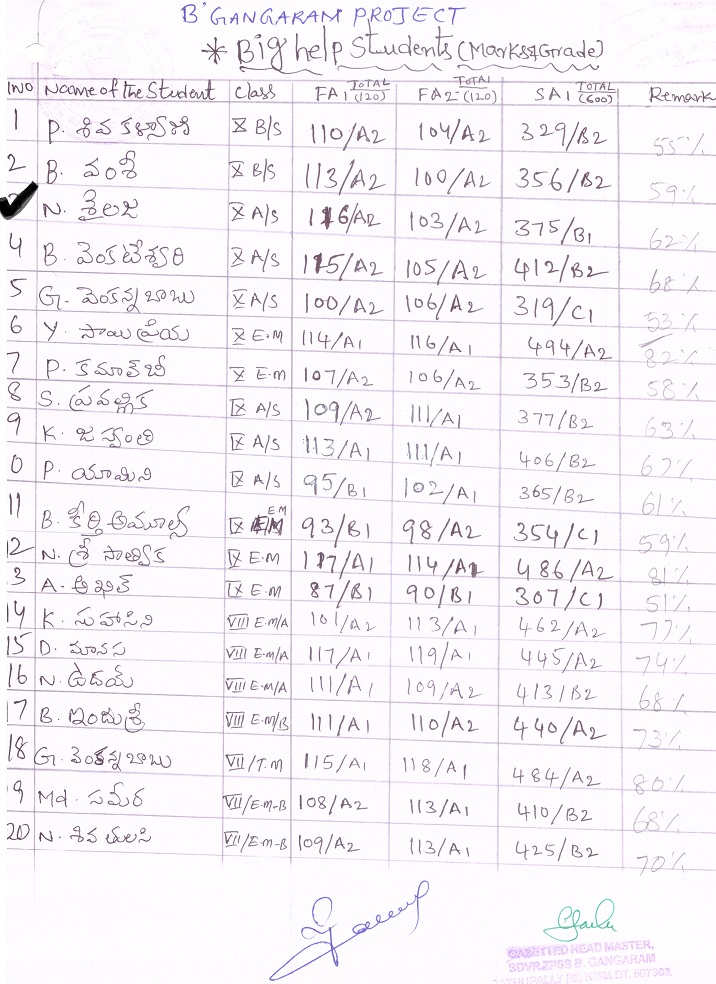 B' GANGARAM PROJECT
* Big help Students (Marks & Grade)
NO Name of the Student Class FA1 TOTAL (120) FA2 TOTAL (120) SA1 TOTAL (600) Remark
1 P. శివ కళ్యాణి X B/S 110/A2 104/A2 329/B2 55%
2 B. వంశీ X B/S 113/A2 100/A2 356/B2 59%
N. శైలజ X A/S 116/A2 103/A2 375/B1 62%
4 B. వెంకటేశ్వరి X A/S 115/A2 105/A2 412/B2 68%
5 G. వెంకన్నబాబు X A/S 100/A2 106/A2 319/C1 53%
6 Y. సాయిప్రియ X E.M 114/A1 116/A1 494/A2 82%
7 P. కమాల్‌బీ X E.M 107/A2 106/A2 353/B2 58%
8 S. ప్రవల్లిక IX A/S 109/A2 111/A1 377/B2 63%
9 K. జస్వంతి IX A/S 113/A1 111/A1 406/B2 67%
0 P. యామిని IX A/S 95/B1 102/A1 365/B2 61%
11 B. కీర్తి అమూల్య IX EM 93/B1 98/A2 354/C1 59%
12 N. శ్రీ సాత్విక IX E.M 117/A1 114/A1 486/A2 81%
3 A. అఖిల్ IX E.M 87/B1 90/B1 307/C1 51%
14 K. సుహాసిని VIII E.M/A 101/A2 113/A1 462/A2 77%
15 D. మానస VIII E.M/A 117/A1 119/A1 445/A2 74%
16 N. ఉదయ్ VIII E.M/A 111/A1 109/A2 413/B2 68%
17 B. ఇందుశ్రీ VIII E.M/B 111/A1 110/A2 440/A2 73%
18 G. వెంకన్నబాబు VII/T.M 115/A1 118/A1 484/A2 80%
9 Md. సమీర VII/E.M-B 108/A2 113/A1 410/B2 68%
20 N. శివ తులసి VII/E.M-B 109/A2 113/A1 425/B2 70%
GAZETTED HEAD MASTER,
SDVR.ZPSS B. GANGARAM